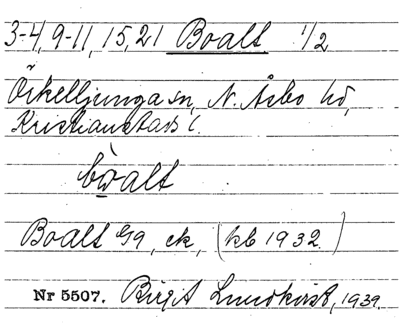 3-4, 9-11, 15, 21 Boalt 1/2
Örkelljunga sn, N. Åsbo hd,
Kristianstads l.
bωalt
Boalt 6/19, ek, (kb 1932)
Nr 5507. Birgit Lundkvist, 1939.